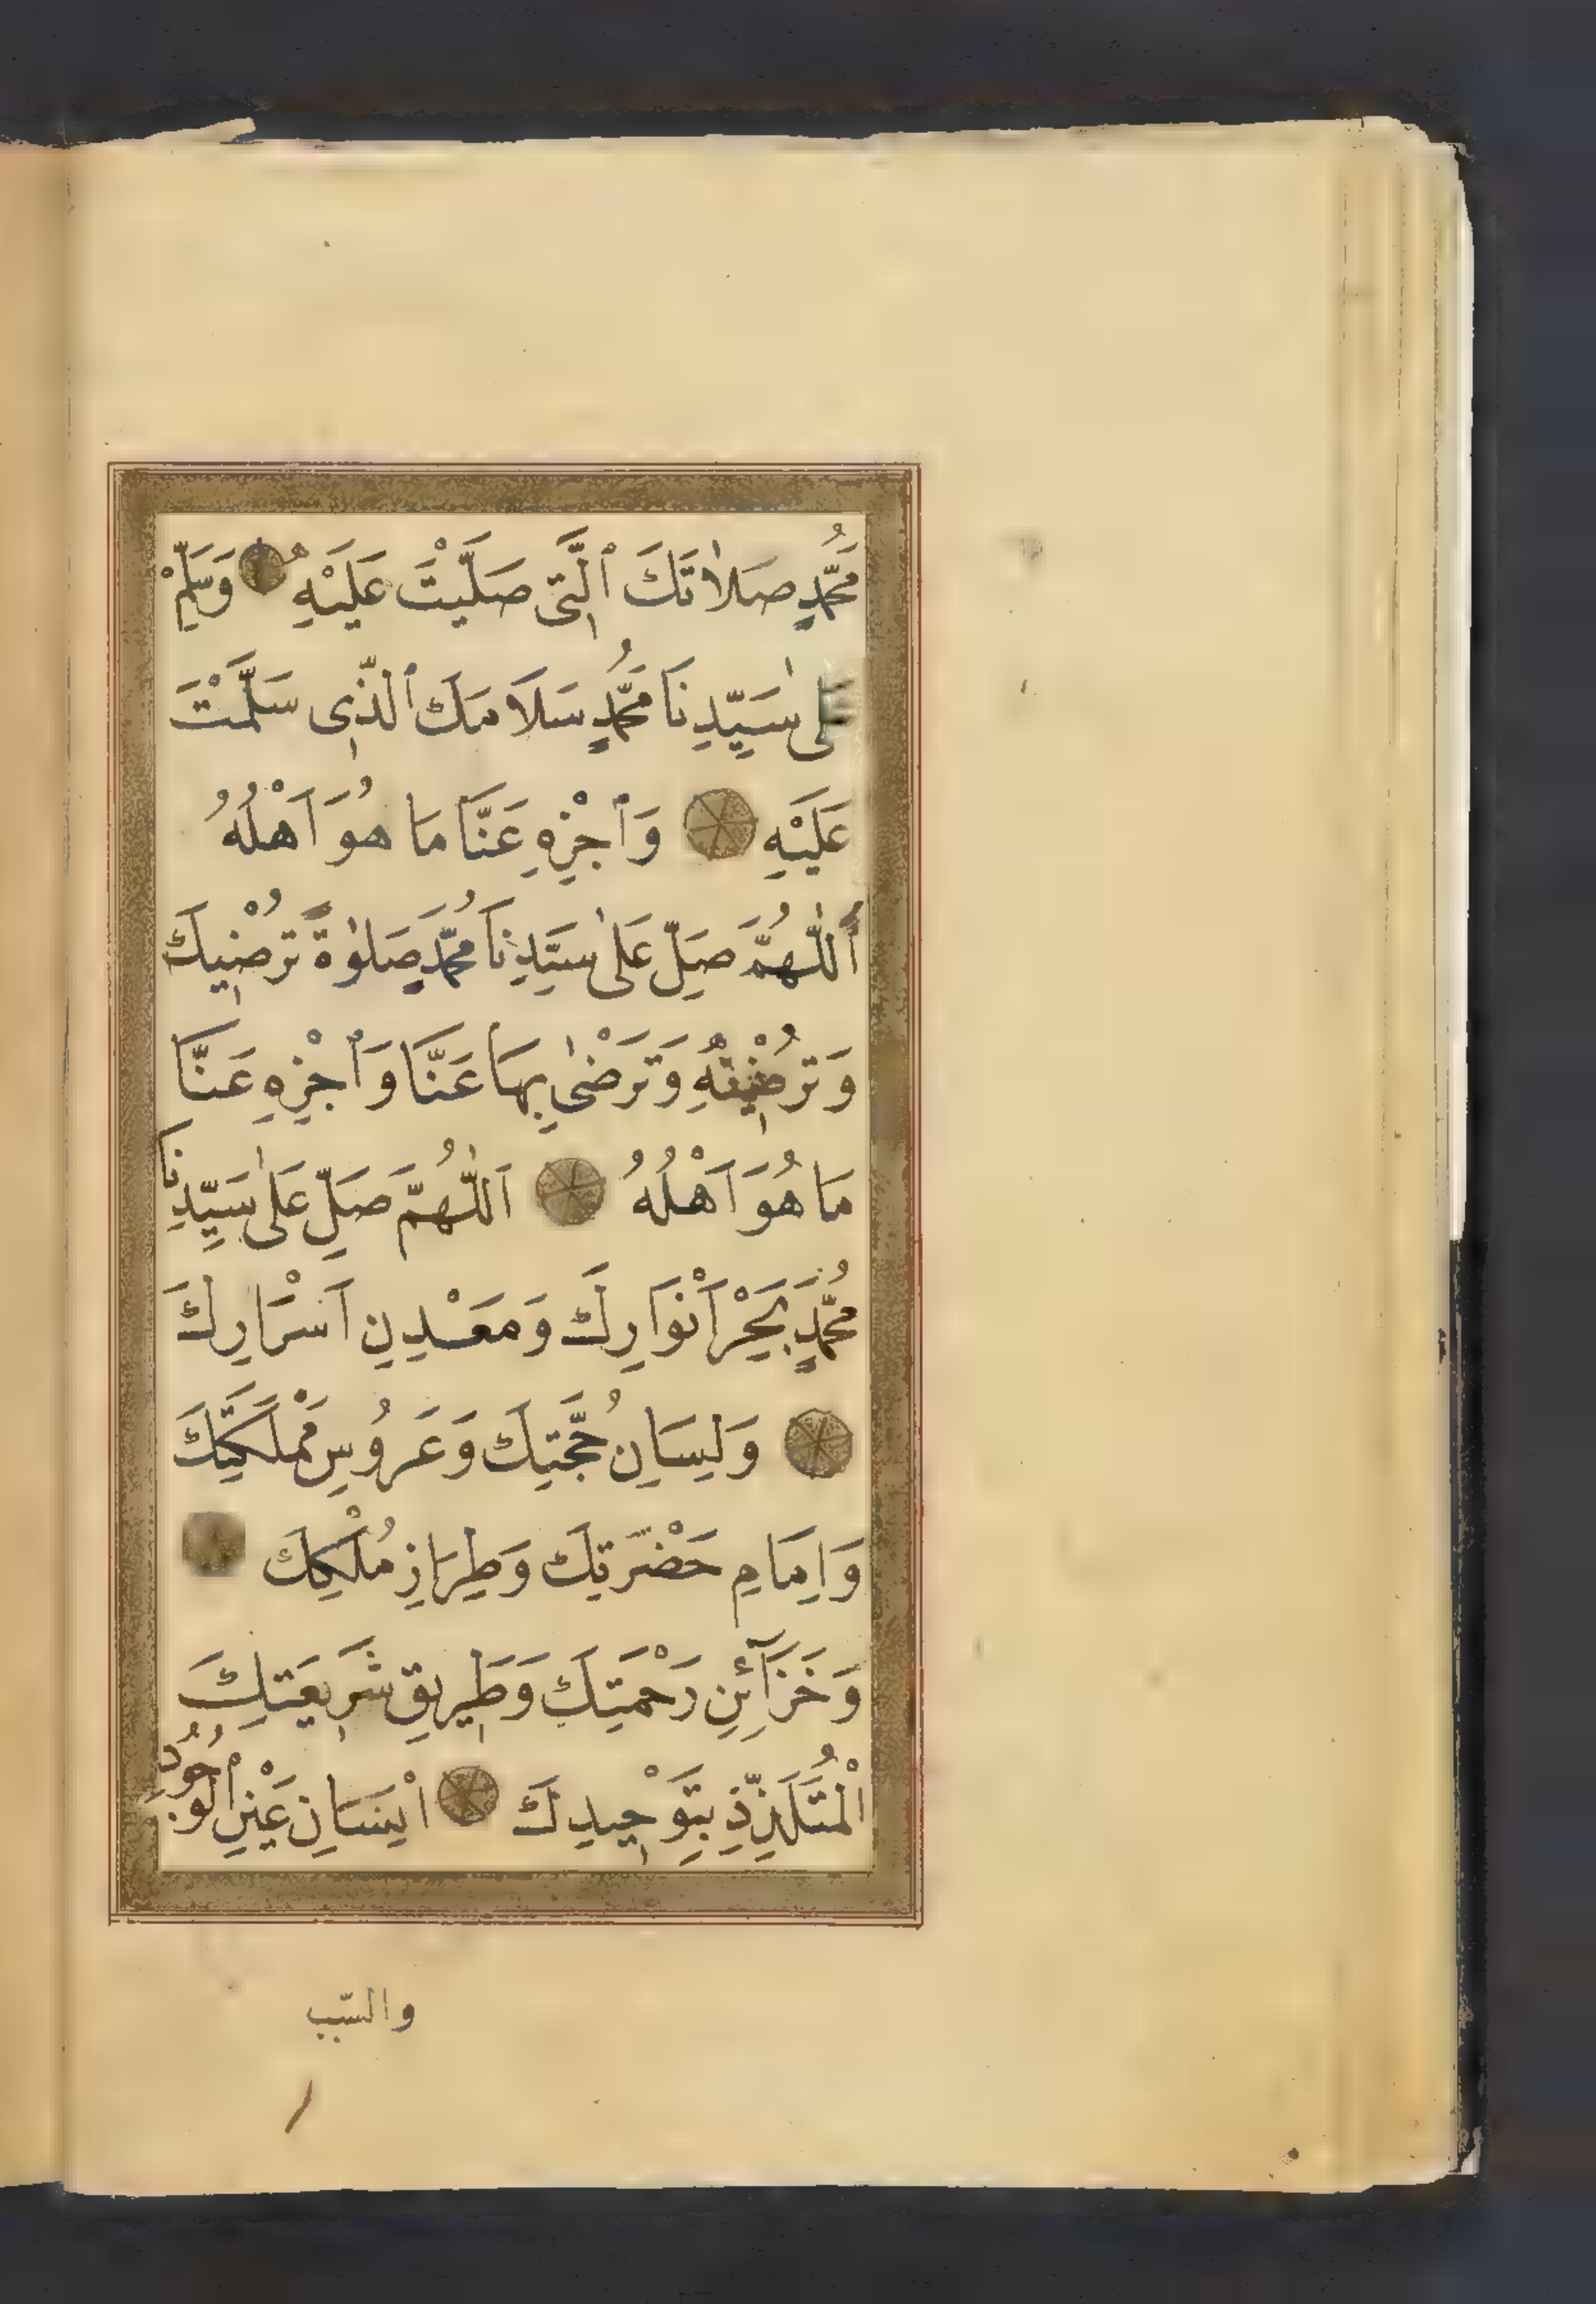 مُحَمَّدٍ صَلَاتَكَ ٱلَّتِى صَلَّيْتَ عَلَيْهِ وَسَلِّمْ
عَلٰى سَيِّدِنَا مُحَمَّدٍ سَلَامَكَ ٱلَّذِى سَلَّمْتَ
عَلَيْهِ وَٱجْزِهِ عَنَّا مَا هُوَ اَهْلُهُ
اَللّٰهُمَّ صَلِّ عَلٰى سَيِّدِنَا مُحَمَّدٍ صَلٰوةً تُرْضِيكَ
وَتُرْضِيهِ وَتَرْضٰى بِهَا عَنَّا وَٱجْزِهِ عَنَّا
مَا هُوَ اَهْلُهُ اَللّٰهُمَّ صَلِّ عَلٰى سَيِّدِنَا
مُحَمَّدٍ بَحْرِ اَنْوَارِكَ وَمَعْدِنِ اَسْرَارِكَ
وَلِسَانِ حُجَّتِكَ وَعَرُوسِ مَمْلَكَتِكَ
وَاِمَامِ حَضْرَتِكَ وَطِرَازِ مُلْكِكَ
وَخَزَآئِنِ رَحْمَتِكَ وَطَرِيقِ شَرِيعَتِكَ
الْمُتَلَذِّذِ بِتَوْحِيدِكَ اِنْسَانِ عَيْنِ الْوُجُودِ
والسّبب